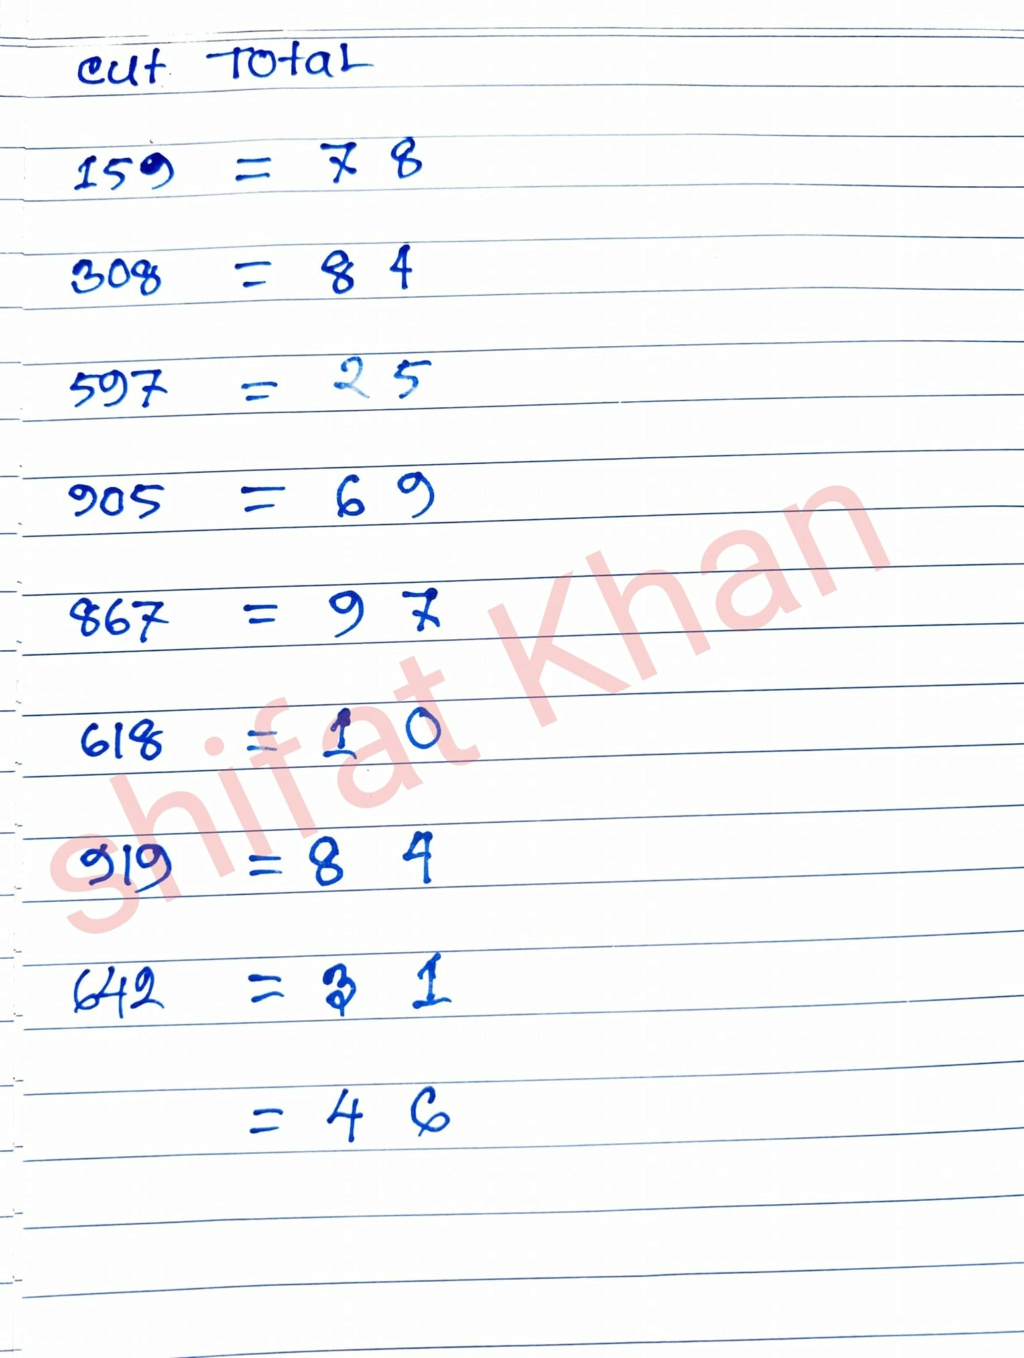 cut TOTAL
159 = 7 8
308 = 8 4
597 = 2 5
905 = 6 9
867 = 9 7
618 = 1 0
919 = 8 4
642 = 3 1
= 4 6
shifat Khan